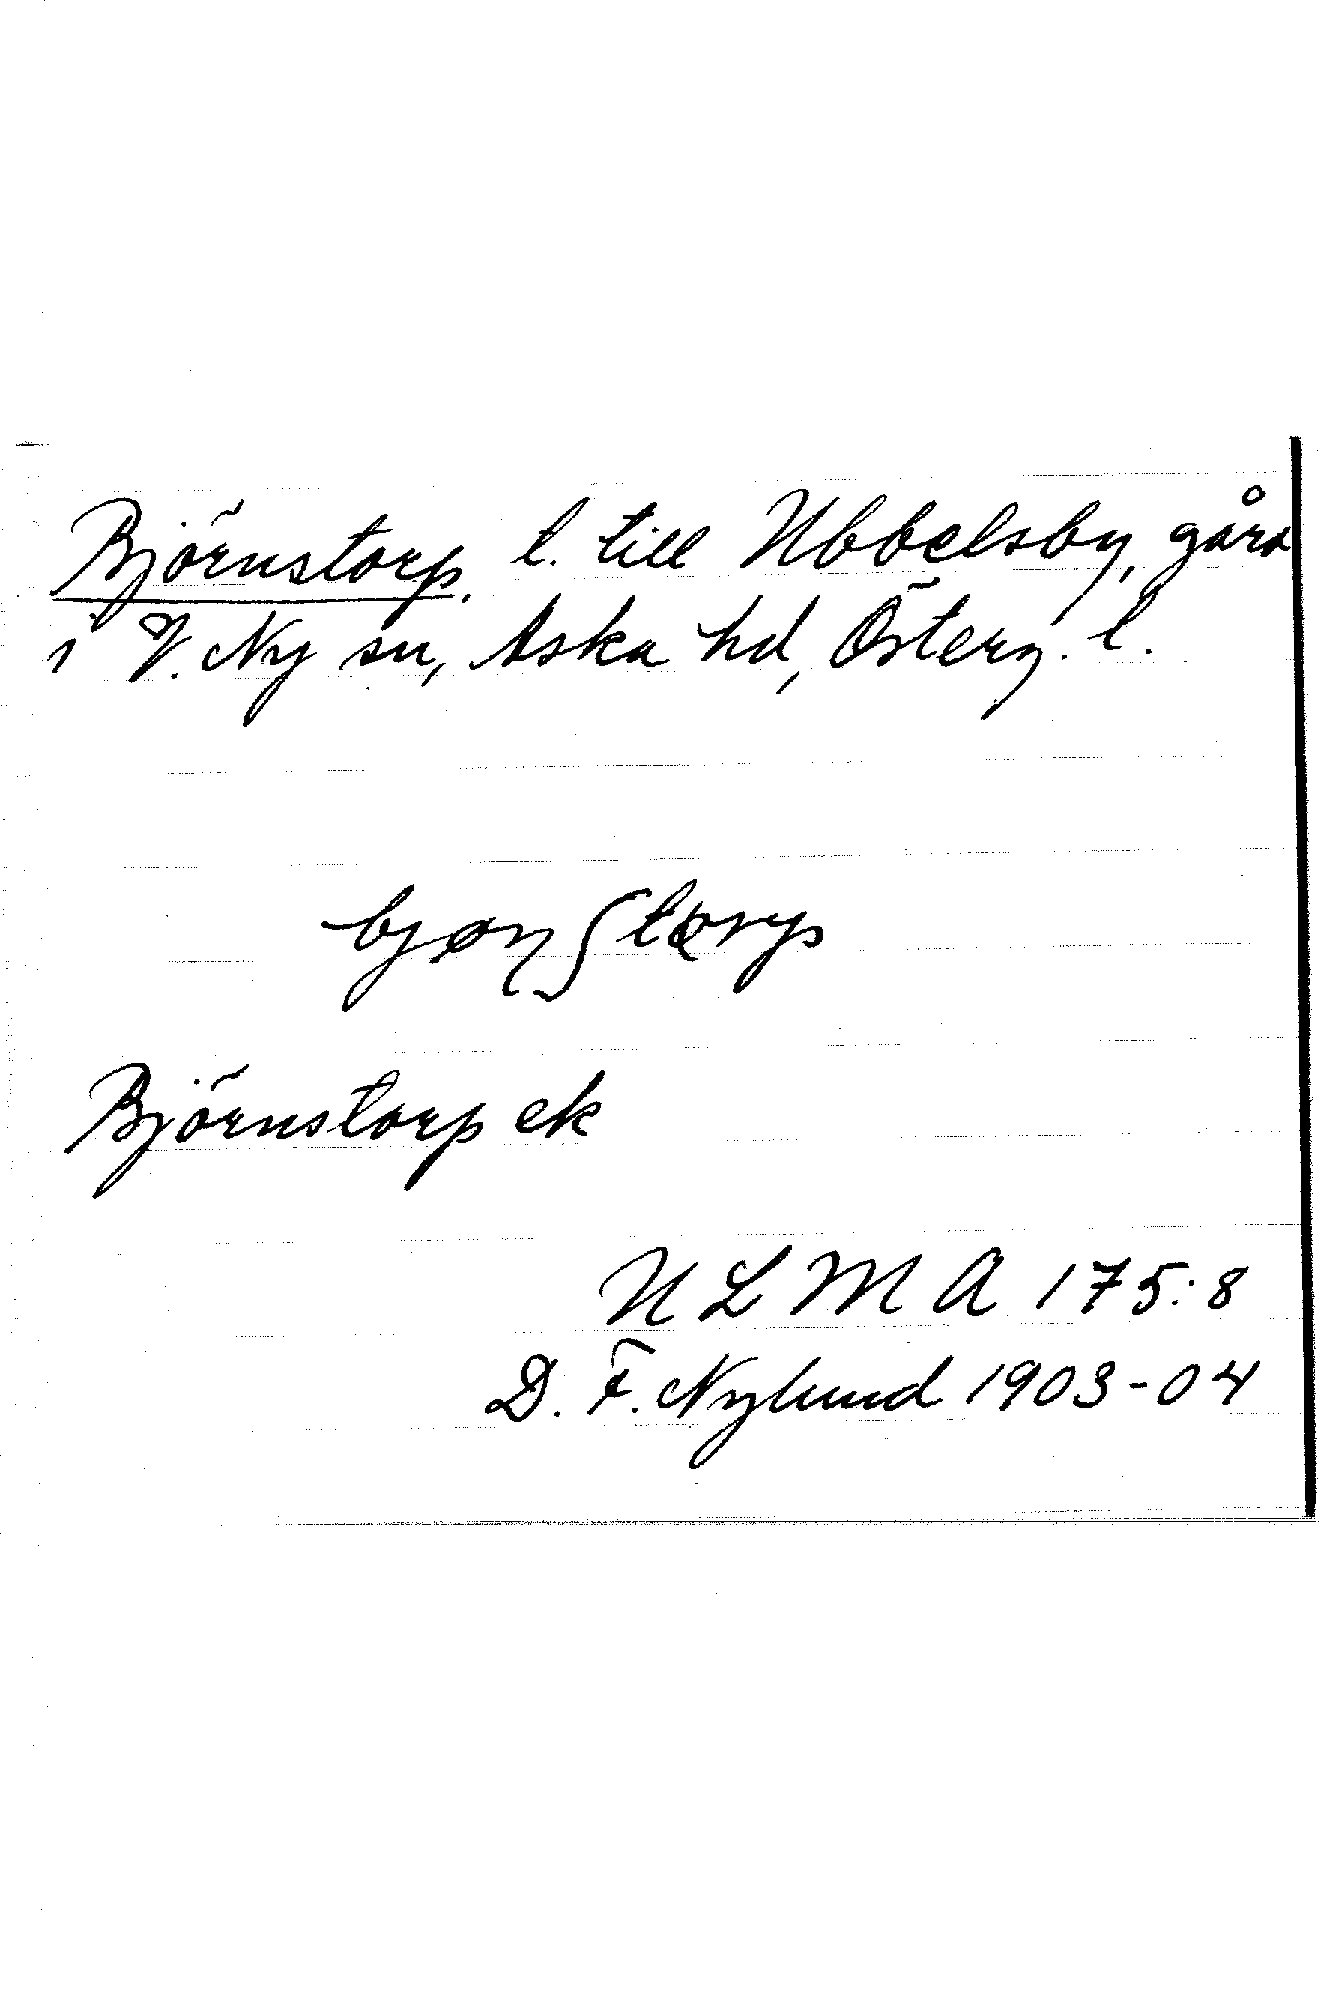 Björnstorp. t. till Ubbelsby, gård
i V. Ny sn, Aska hd, Österg. l.
Björnstorp ek
ULMA 175:8
D. F. Nylund 1903-04